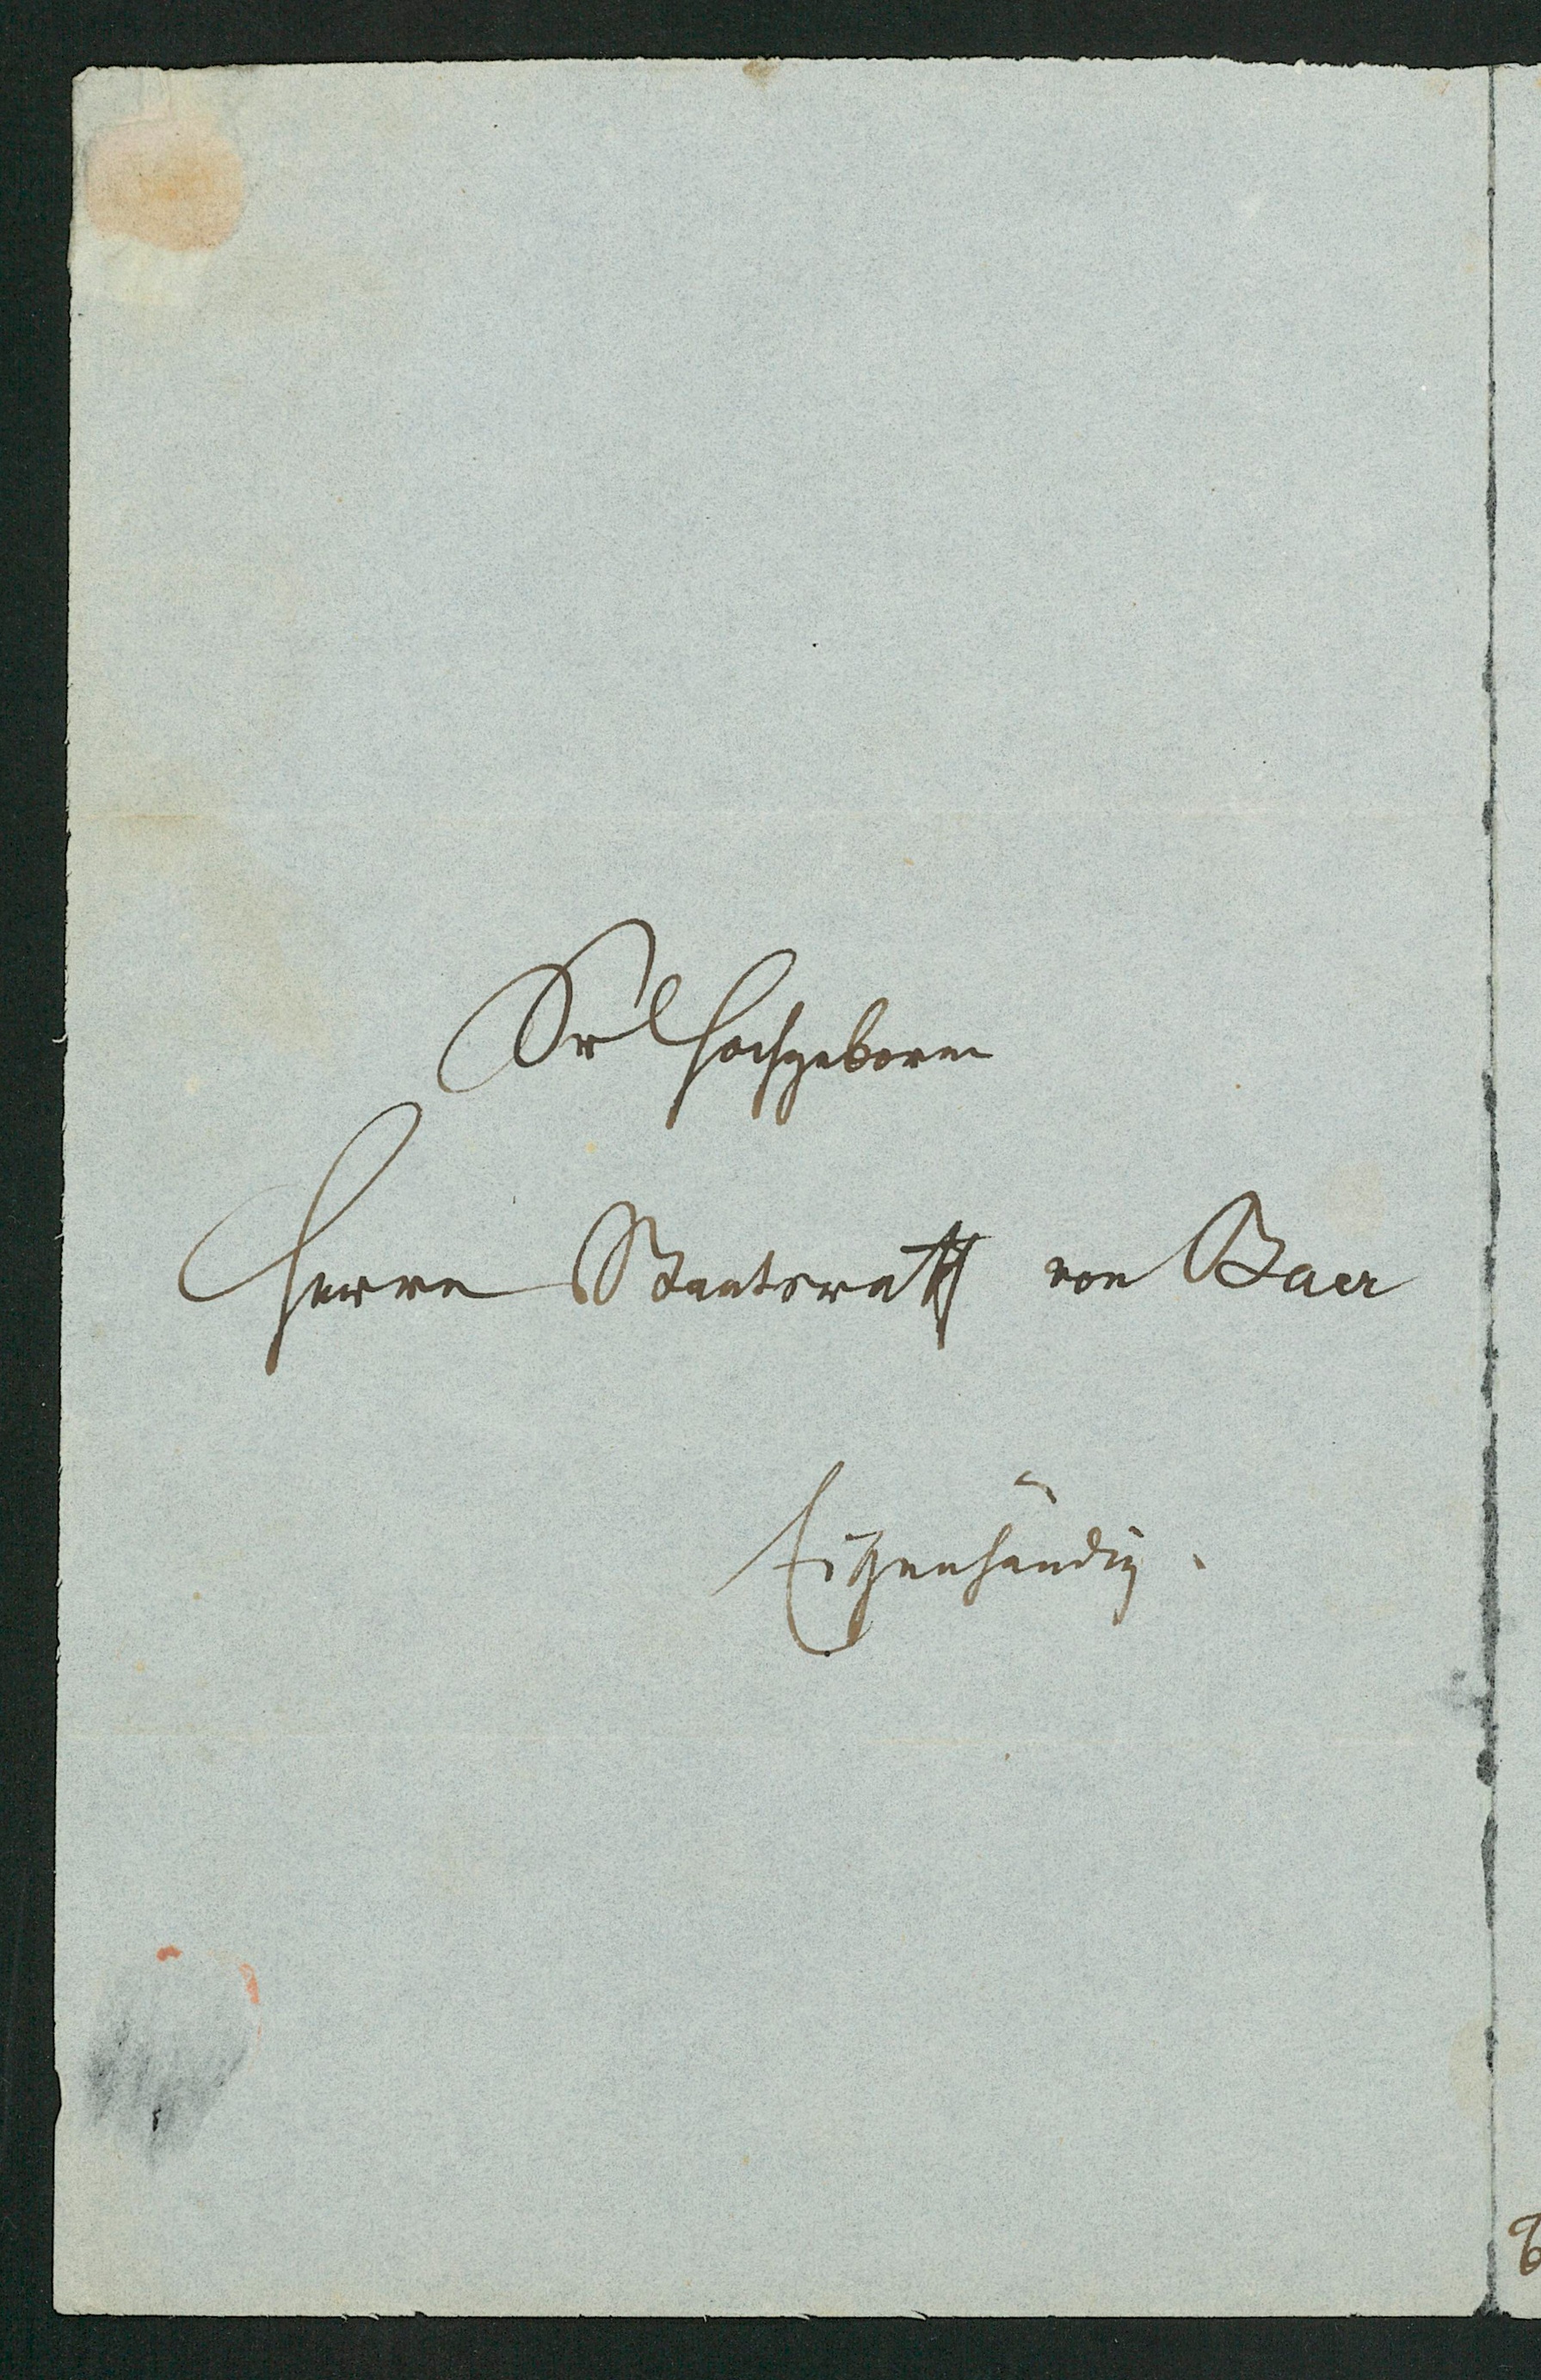 Sr Hochgeboren
Herrn Staatsrath von Baer
Eigenhändig.